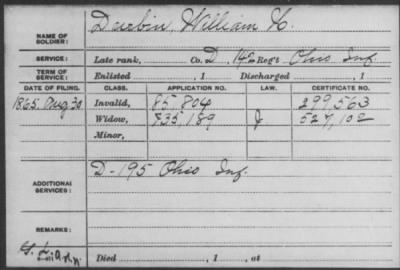 NAME OF SOLDIER: Durbin, William H.
SERVICE: Late rank, Co. D, 142 Reg't Ohio Inf.
TERM OF SERVICE: Enlisted , 1 Discharged , 1
DATE OF FILING. CLASS. APPLICATION NO. LAW. CERTIFICATE NO.
1865 Aug 30 Invalid, 85,804 299,563
Widow, 835,189 J 527,102
Minor,
ADDITIONAL SERVICES: D-195 Ohio Inf.
REMARKS:
Died , 1 , at